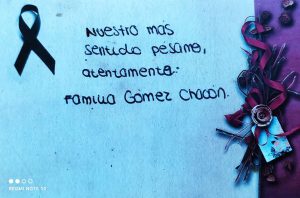 Nuestro más
sentido pésame,
atentamente:
Familia Gómez Chacón.
REDMI NOTE 10